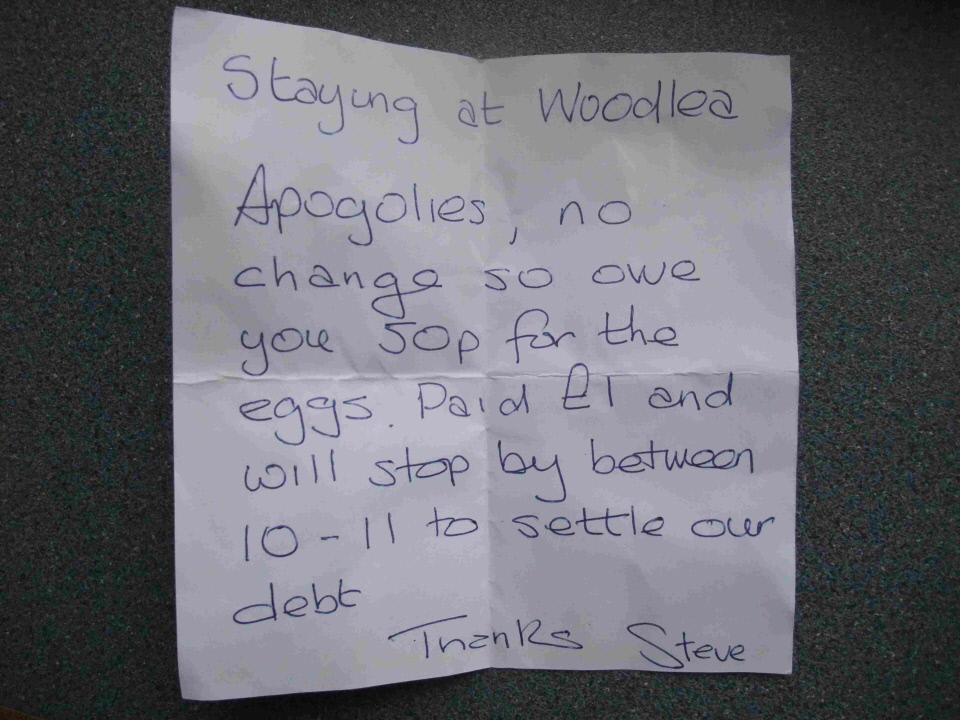 Staying at Woodlea
Apogolies, no
change so owe
you 50p for the
eggs. Paid £1 and
will stop by between
10-11 to settle our
debt
Thanks Steve